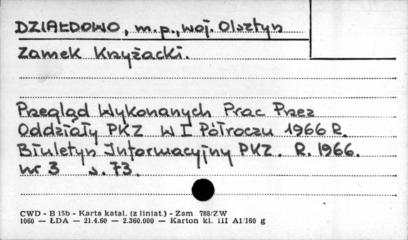 DZIAŁDOWO, m.p., woj. Olsztyn
Zamek Krzyżacki.
Przegląd Wykonanych Prac Przez
Oddziały PKZ W I Półroczu 1966 R.
Biuletyn Informacyjny PKZ. R. 1966.
nr 3 s. 73.
CWD - B 15b - Karta katal. (z liniat.) - Zam 788/ZW
1060 — ŁDA — 21.4.60 — 2.360.000 — Karton kl. III A1/160 g